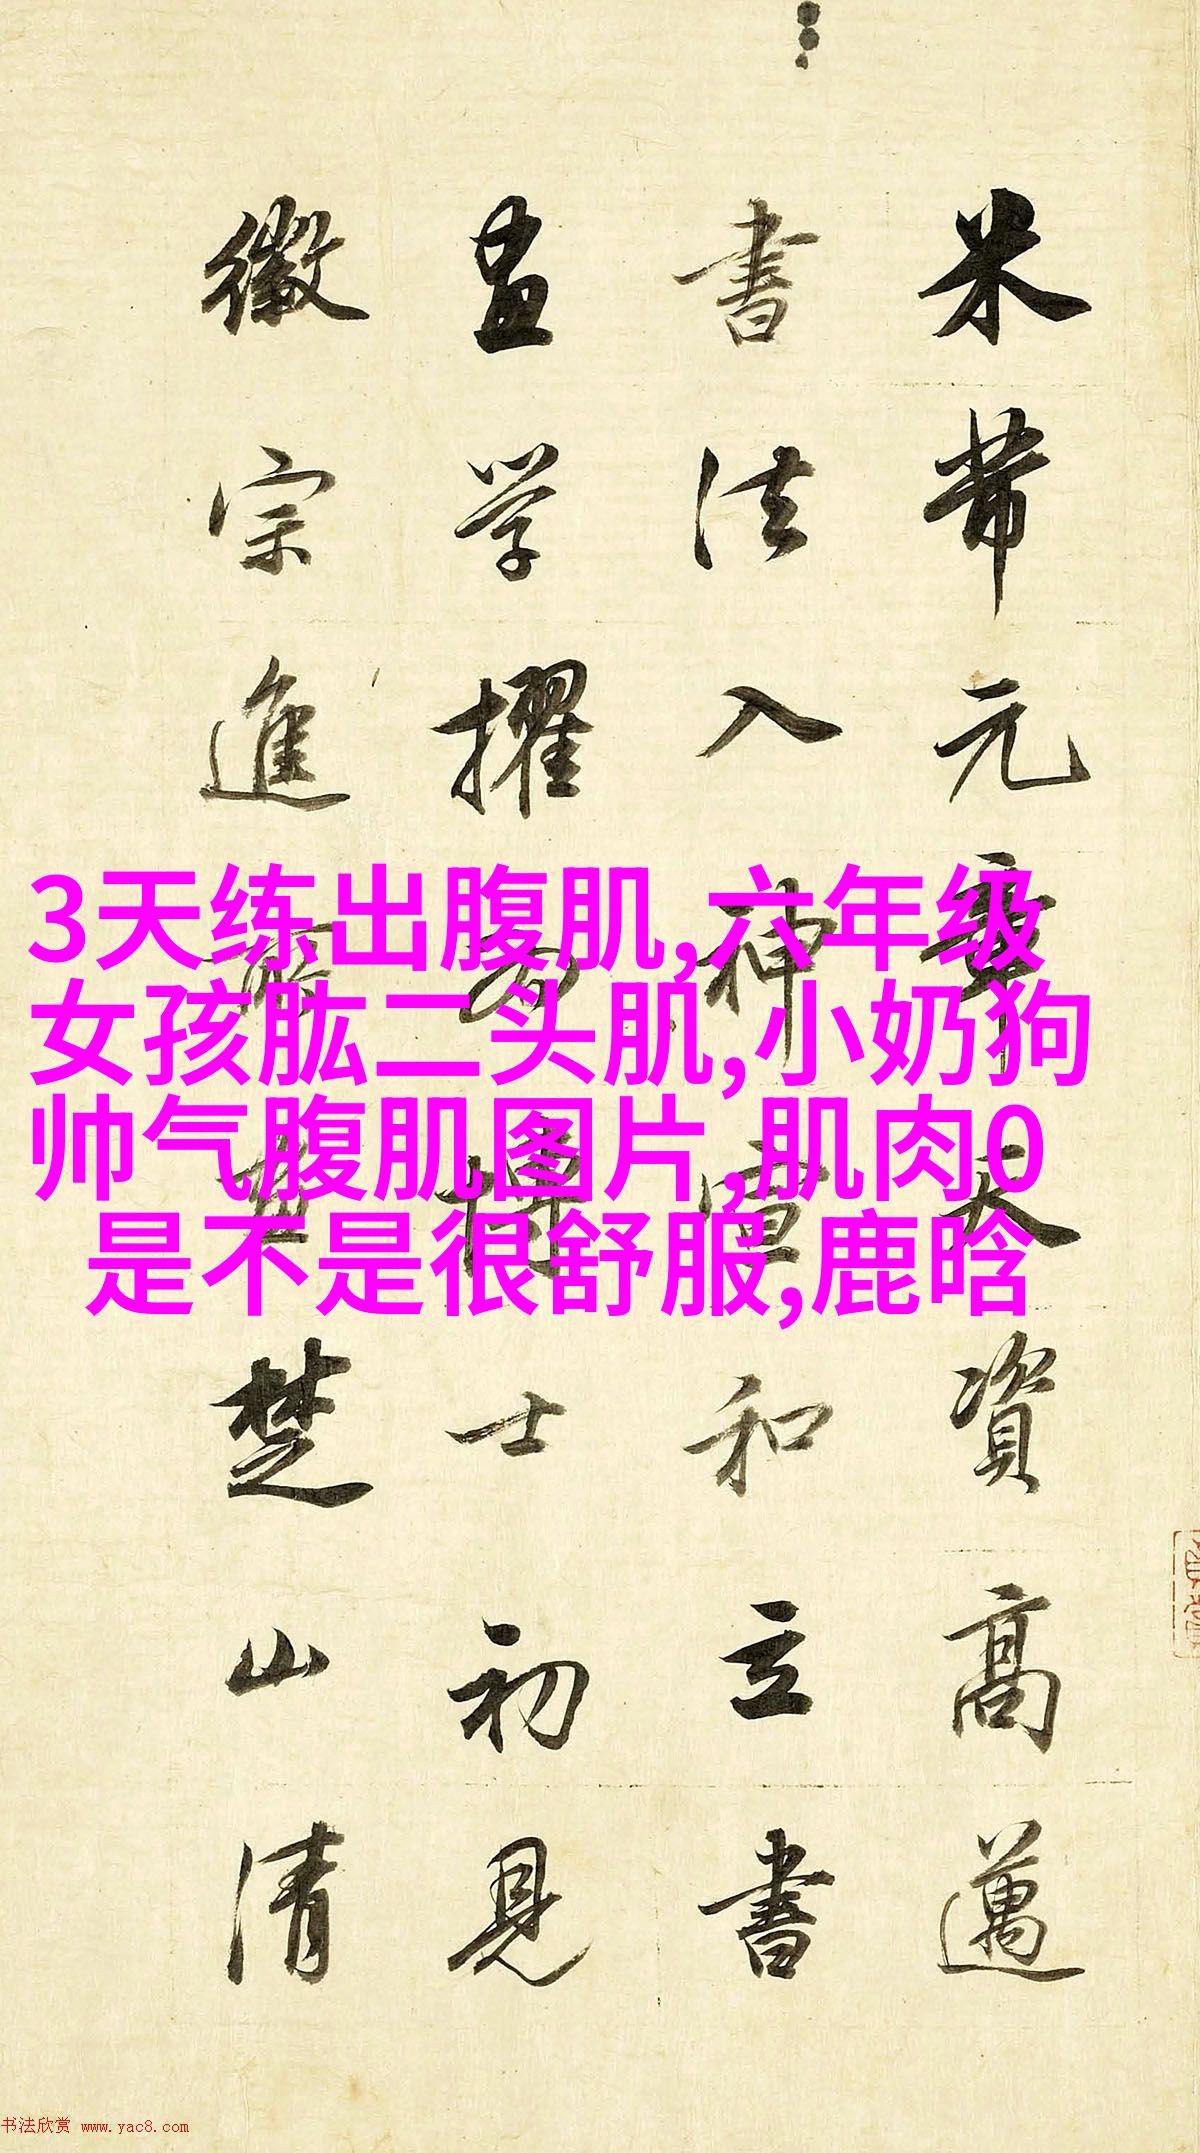 米芾元章天資高邁
書法入神宣和立書
畫学擢為博士初見
徽宗進所畫楚山清
3天练出腹肌,六年级
女孩肱二头肌,小奶狗
帅气腹肌图片,肌肉0
是不是很舒服,鹿晗
书法欣赏 www.yac8.com